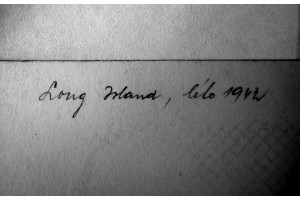 Long Island, léto 1942